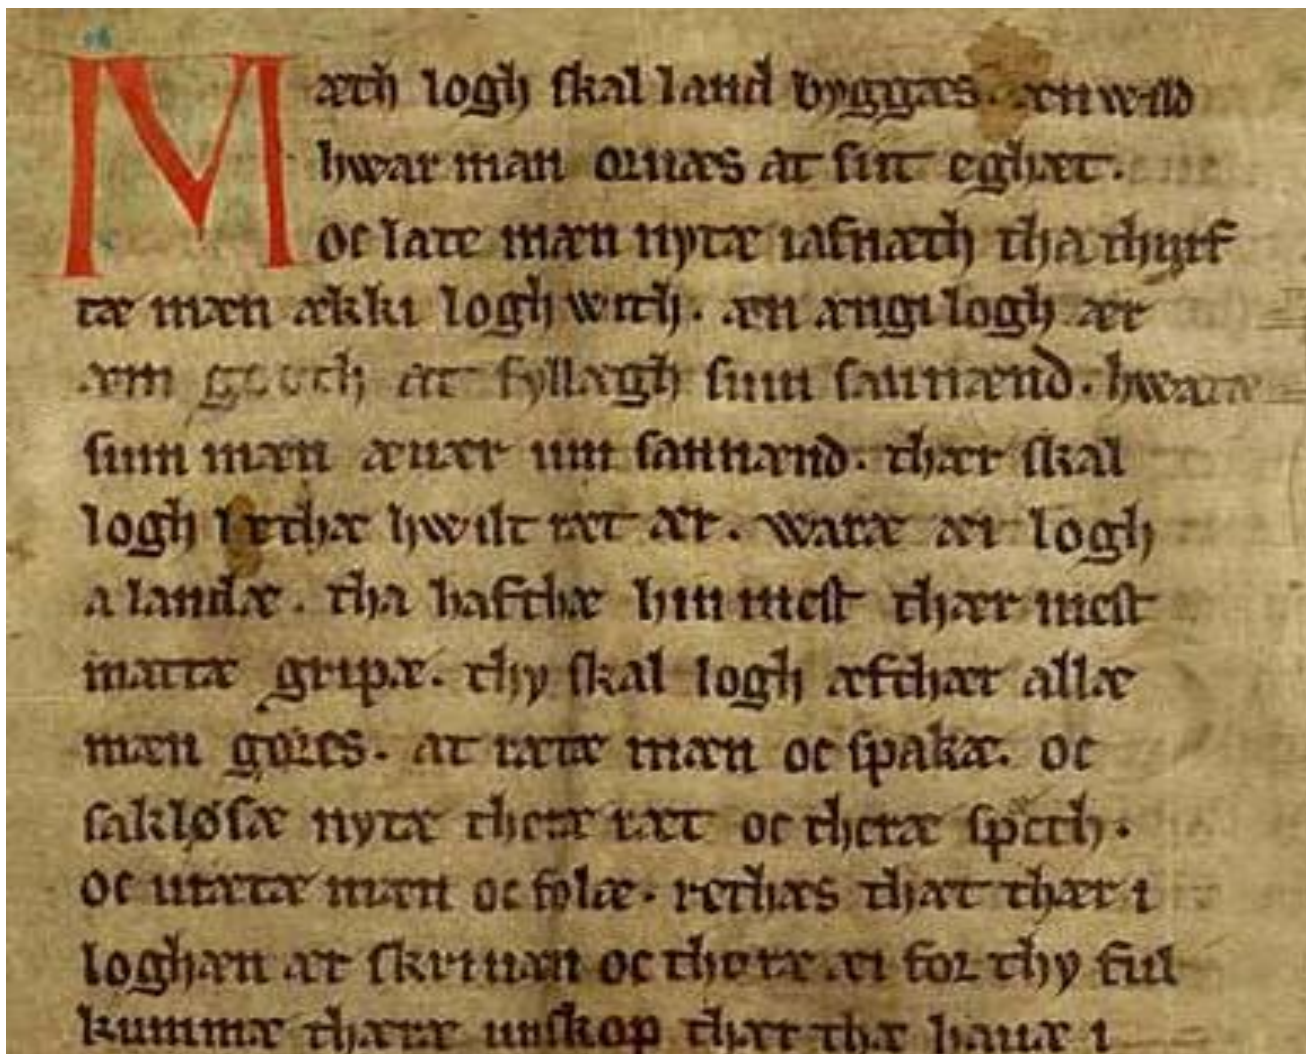 Mæth logh skal land byggæs. æn wild
hwar man oruæs at sint eghæt.
oc late mæn nytæ iafnæth tha thyrf
tæ mæn ækki logh with. æn ængi logh ær
æm gooth at fyllægh sum sannænd. hwaræ
sum mæn æuær um sannænd. thær skal
logh lethæ hwilt ræt ær. waræ æi logh
a landæ. tha hafthæ hin mest thær mest
mattæ gripæ. thy skal logh æfthær allæ
mæn gøres. at rætæ mæn oc spakæ. oc
sakløsæ nytæ theræ ræt oc theræ spæth.
oc urætæ mæn oc folæ. rethæs thæt thær i
loghæn ær skriuæn oc thoræ æi for thy ful
kummæ theræ unskop thær the hauæ i